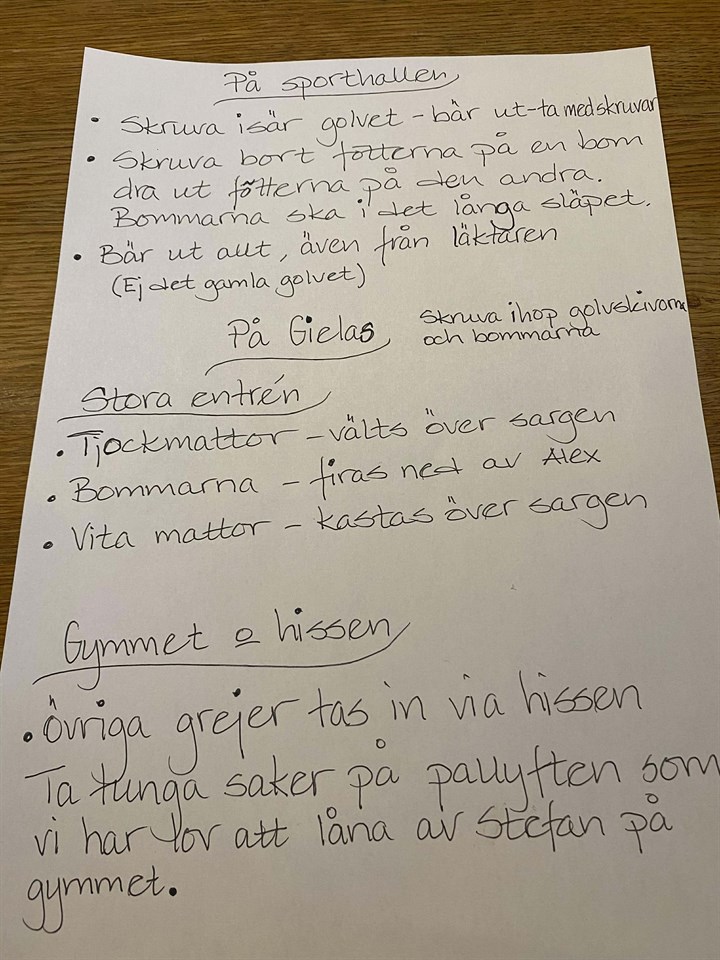 På sporthallen
• Skruva isär golvet - bär ut - ta med skruvar
• Skruva bort fötterna på en bom
dra ut fötterna på den andra.
Bommarna ska i det långa släpet.
• Bär ut allt, även från läktaren
(Ej det gamla golvet)
På Gielas
Skruva ihop golvskivorna
och bommarna
Stora entrén
• Tjockmattor - välts över sargen
• Bommarna - firas ned av Alex
• Vita mattor - kastas över sargen
Gymmet o hissen
• Övriga grejer tas in via hissen
Ta tunga saker på pallyften som
vi har lov att låna av Stefan på
gymmet.